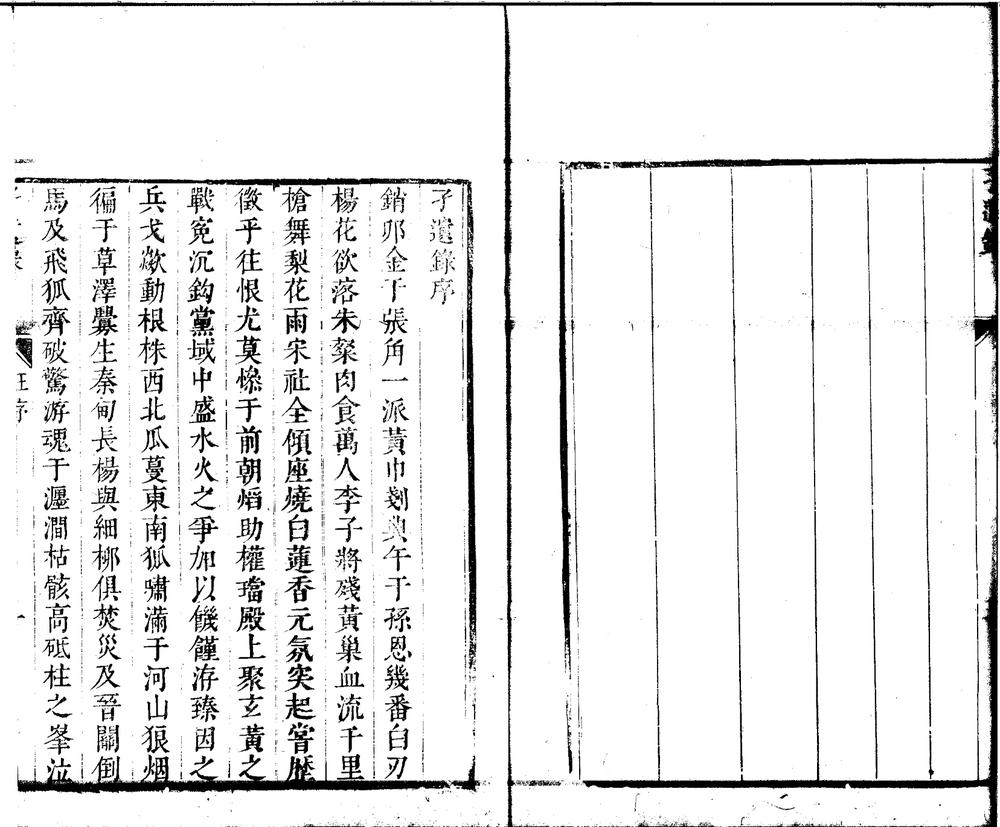 孑遺錄序
銷夘金于張角一派黃巾剗典午于孫恩幾番白刃
楊花欲落朱粲肉食萬人李子將殘黃巢血流千里
槍舞梨花雨宋社全傾座燒白蓮香元氛突起嘗歷
徵乎往恨尤莫慘于前朝熖助權璫殿上聚玄黃之
戰寃沉鈎黨域中盛水火之爭加以饑饉洊臻因之
兵戈歘動根株西北瓜蔓東南狐嘯滿于河山狼烟
徧于草澤釁生秦甸長楊與細柳俱焚災及晉關倒
馬及飛狐齊破驚游魂于瀍澗枯骸高砥柱之峯泣
汪序
一